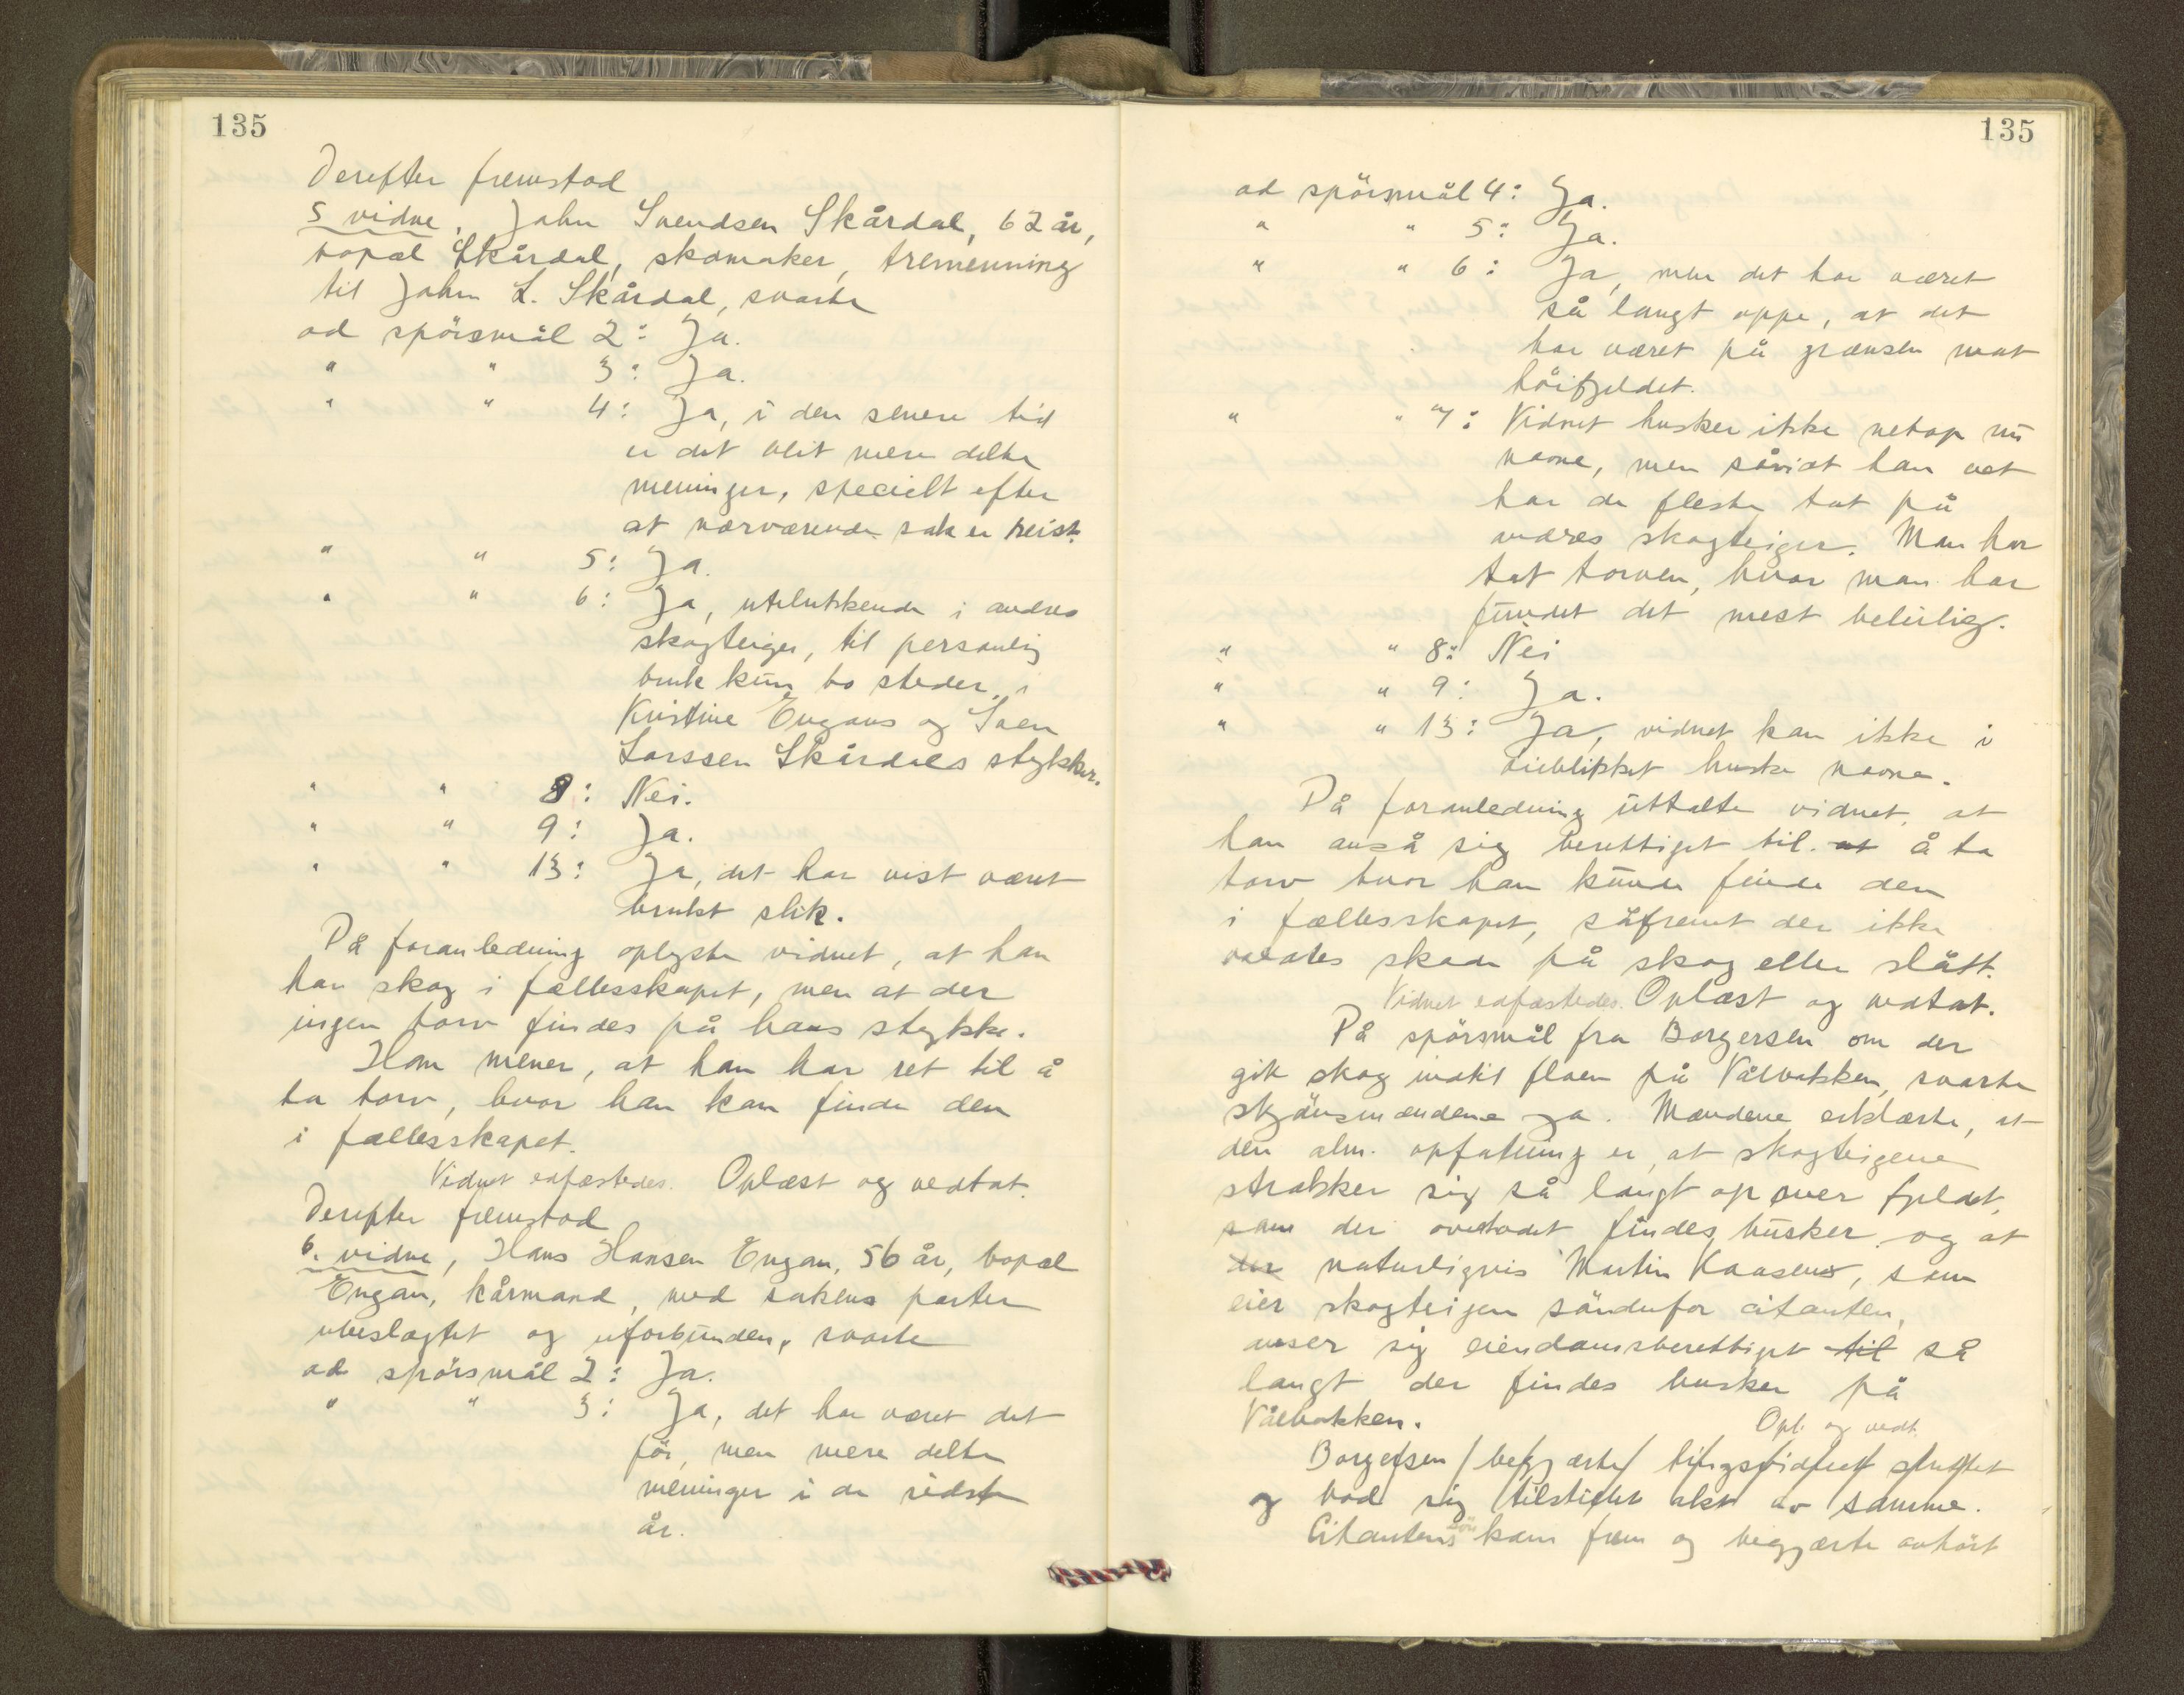 135
Derefter fremstod
5 vidne, John Svendsen Skårdal, 62 år,
bopæl Skårdal, skomaker, tremenning
til John L. Skårdal, svarte
ad spörsmål 2: Ja.
" " 3: Ja.
" " 4: Ja, i den senere tid
er det blit mere delte
meninger, specielt efter
at nærværende sak er reist.
" " 5: Ja.
" " 6: Ja, utelukkende i andres
skogteiger, til personlig
bruk kun to steder, i
Kristine Engans og Sven
Larssen Skårdals stykker.
" " 8: Nei.
" " 9: Ja.
" " 13: Ja, det har vist været
brukt slik.
På foranledning oplyste vidnet, at han
har skog i fællesskapet, men at der
ingen torv findes på hans stykke.
Han mener, at han har ret til å
ta torv, hvor han kan finde den
i fællesskapet.
Vidnet edfæstedes. Oplæst og vedtat.
Derefter fremstod
6. vidne, Hans Hansen Engan, 56 år, bopæl
Engan, kårmand, med sakens parter
ubeslægtet og uforbunden, svarte
ad spörsmål 2: Ja.
" " 3: Ja, det har været det
för, men mere delte
meninger i de sidste
år.
135
ad spörsmål 4: Ja.
" " 5: Ja.
" " 6: Ja, men det har været
så langt oppe, at det
har været på grænsen mot
höifjeldet.
" " 7: Vidnet husker ikke netop nu
navne, men såvidt han vet
har de fleste tat på
andres skogteiger. Man har
tat torven, hvor man har
fundet det mest beleilig.
" " 8: Nei
" " 9: Ja.
" " 13: Ja, vidnet kan ikke i
öieblikket huske navne.
På foranledning uttalte vidnet, at
han anså sig berettiget til at å ta
torv hvor han kunde finde den
i fællesskapet, såfremt der ikke
voldtes skade på skog eller slått.
Vidnet edfæstedes. Oplæst og vedtat.
På spörsmål fra Borgersen om der
gik skog indtil flaen på Vålbakken, svarte
skjönsmændene ja. Mændene erklærte, at
den alm. opfatning er, at skogteigene
strækker sig så langt op over fjeldet,
som der overhodet findes busker, og at
der naturligvis Martin Kaasens, som
eier skogteigen söndenfor citanten,
anser sig eiendomsberettiget til så
langt der findes busker på
Vålbakken. Opl. og vedt.
Borgersen begjærte tingsvidnet sluttet
og bad sig tilstillet akt av samme.
Citantens sön kom frem og begjærte avhört